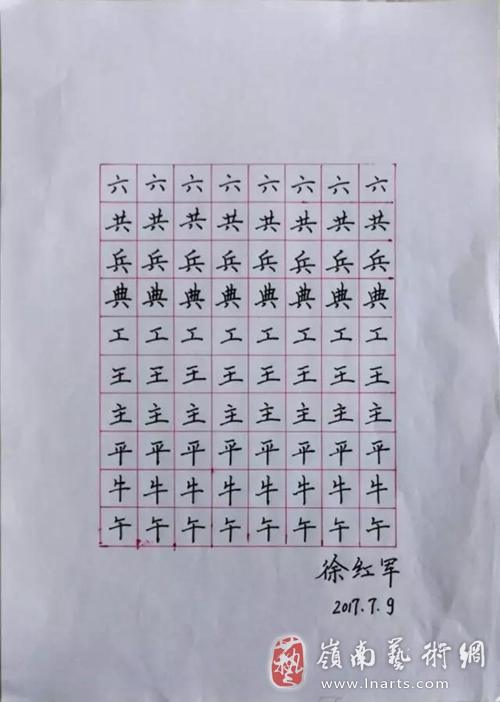 六六六六六六六六
共共共共共共共共
兵兵兵兵兵兵兵兵
典典典典典典典典
工工工工工工工工
王王王王王王王王
主主主主主主主主
平平平平平平平平
牛牛牛牛牛牛牛牛
午午午午午午午午
徐红军
2017.7.9
藝
嶺南藝術網
www.lnarts.com